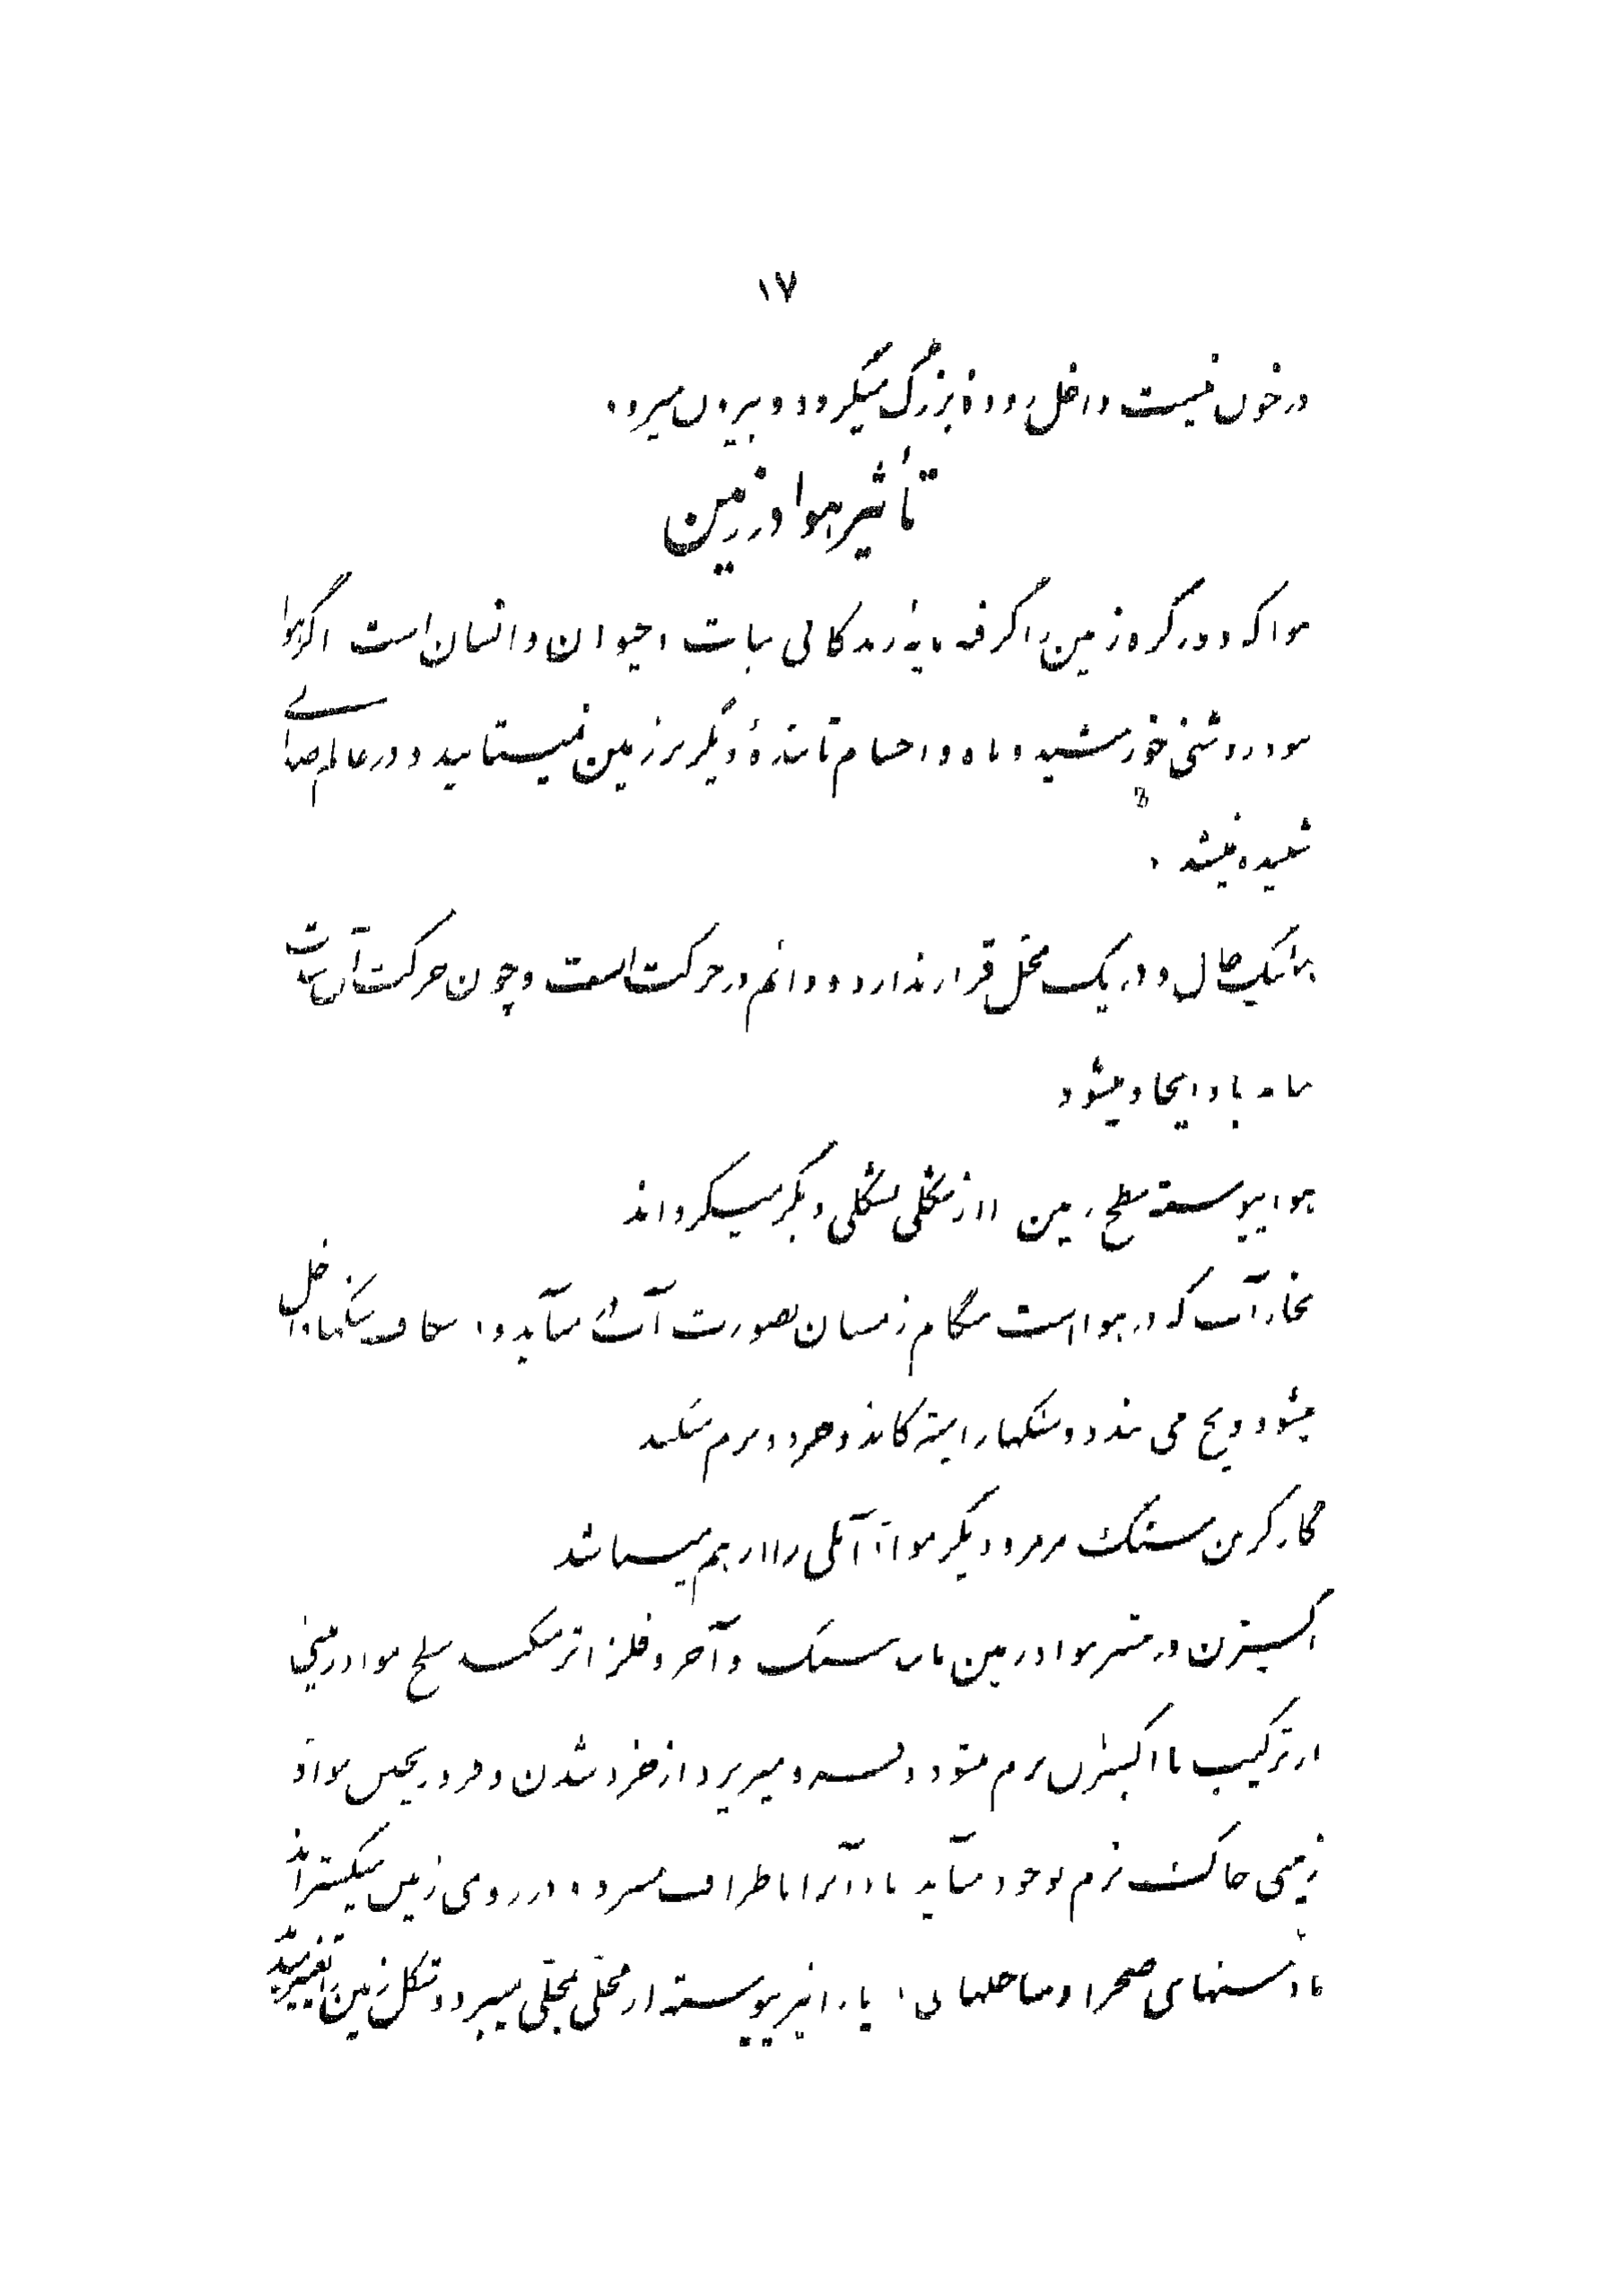 ۱۷
در خون نیست داخل رودهٔ بزرگ میگردد و بیرون میرود.
تأثیر هوا در زمین
هوا که دور کره زمین را گرفته مایهٔ زندگانی نبات و حیوان و انسان است اگر هوا
نبود روشنی خورشید و ماه و اجسام تابندهٔ دیگر بر زمین نمیتابید و در عالم صدائی
شنیده نمیشد.
هوا بیک حال و در یک محل قرار ندارد و دائم در حرکت است و چون حرکت آن شدت
یابد باد ایجاد میشود
هوا پیوسته سطح زمین را از شکلی بشکلی دیگر میگرداند
بخار آب که در هوا است هنگام زمستان بصورت آب میآید و در شکاف سنگها داخل
میشود و یخ می بندد و سنگها را میترکاند و خرد و نرم میکند
گاز کربن سنگ مرمر و دیگر مواد آهکی را از هم میپاشد
اکسیژن در بیشتر مواد زمین مانند سنگ و آجر و فلز اثر میکند سطح مواد زمینی
از ترکیب با اکسیژن نرم میشود و میریزد از خرد شدن و فرو ریختن مواد
زمینی خاک نرم بوجود میآید باد آنرا باطراف میبرد و در روی زمین میگستراند
باد شنهای صحرا و ساحلهای دریا را نیز پیوسته از محلی بمحلی میبرد و شکل زمین را تغییر میدهد